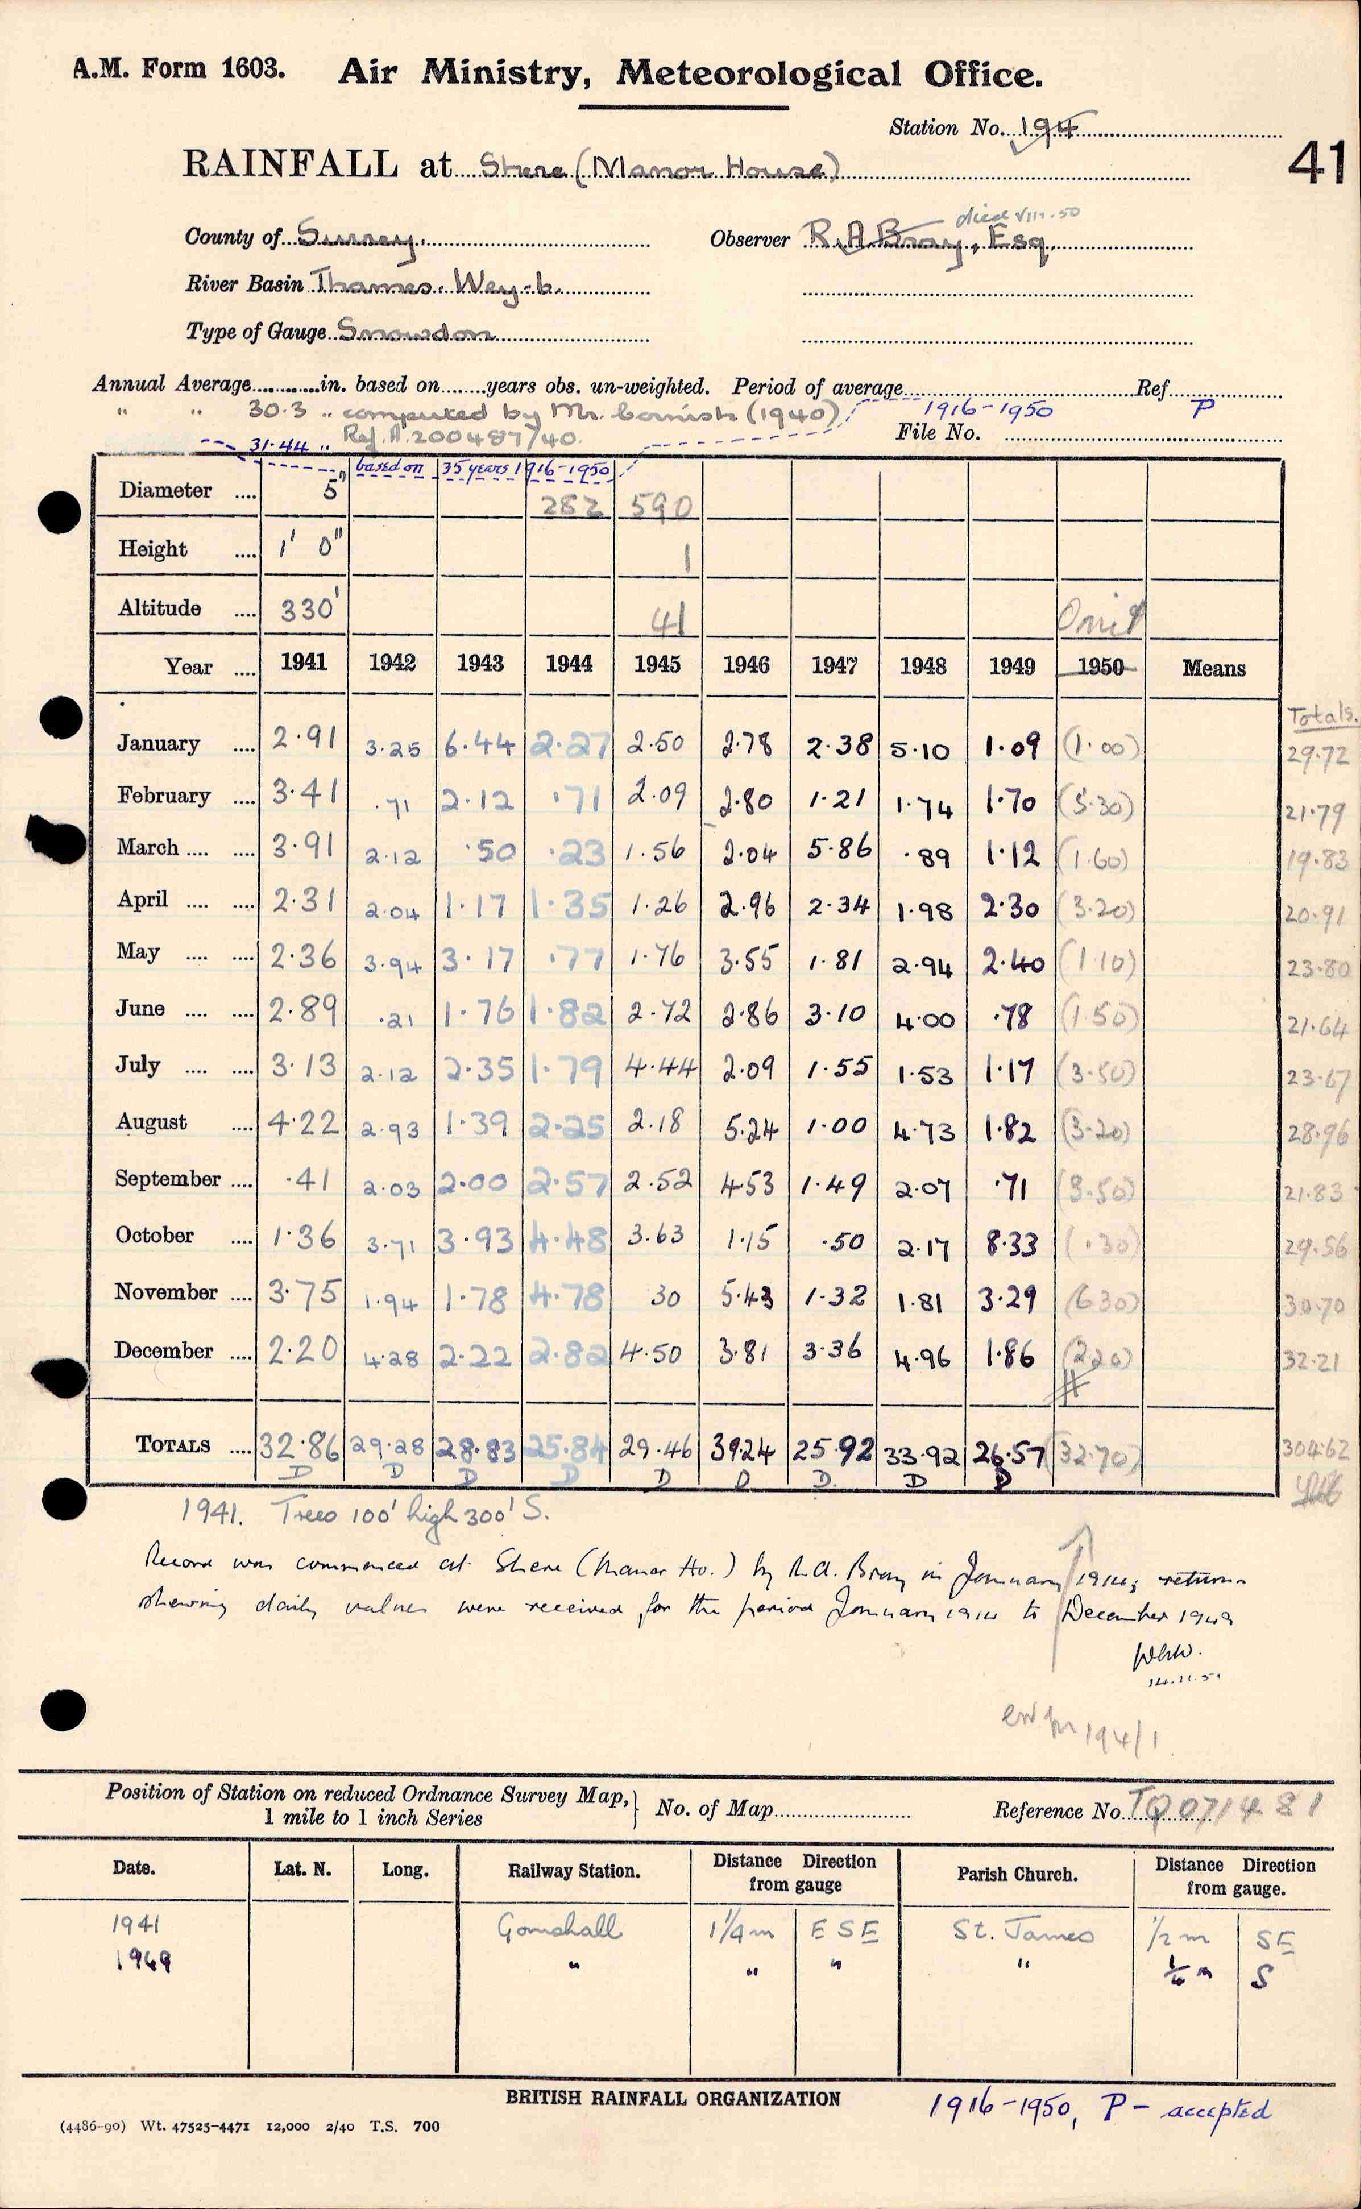 A.M. Form 1603. Air Ministry, Meteorological Office.
Station No. 194
41
RAINFALL at Shere (Manor House)
died VIII.50
County of Surrey. Observer R.A Bray, Esq.
River Basin Thames. Wey-b.
Type of Gauge Snowdon
Annual Average............in. based on........years obs. un-weighted. Period of average Ref
" " 30.3 .. computed by Mr. Cornish (1940) 1916-1950 P
31.44 .. Ref. A.200487/40. File No.
based on 35 years 1916-1950
Diameter .... 5" 282 590
Height .... 1' 0" 1
Altitude .... 330' 41 Omit
Year .... 1941 1942 1943 1944 1945 1946 1947 1948 1949 1950 Means
Totals.
January .... 2.91 3.25 6.44 2.27 2.50 2.78 2.38 5.10 1.09 (1.00) 29.72
February .... 3.41 .71 2.12 .71 2.09 2.80 1.21 1.74 1.70 (5.30) 21.79
March .... .... 3.91 2.12 .50 .23 1.56 2.04 5.86 .89 1.12 (1.60) 19.83
April .... .... 2.31 2.04 1.17 1.35 1.26 2.96 2.34 1.98 2.30 (3.20) 20.91
May .... .... 2.36 3.94 3.17 .77 1.76 3.55 1.81 2.94 2.40 (1.10) 23.80
June .... .... 2.89 .21 1.76 1.82 2.72 2.86 3.10 4.00 .78 (1.50) 21.64
July .... .... 3.13 2.12 2.35 1.79 4.44 2.09 1.55 1.53 1.17 (3.50) 23.67
August .... 4.22 2.93 1.39 2.25 2.18 5.24 1.00 4.73 1.82 (3.20) 28.96
September .... .41 2.03 2.00 2.57 2.52 4.53 1.49 2.07 .71 (3.50) 21.83
October .... 1.36 3.71 3.93 4.48 3.63 1.15 .50 2.17 8.33 (.30) 29.56
November .... 3.75 1.94 1.78 4.78 30 5.43 1.32 1.81 3.29 (6.30) 30.70
December .... 2.20 4.28 2.22 2.82 4.50 3.81 3.36 4.96 1.86 (2.20) 32.21
TOTALS .... 32.86 29.28 28.83 25.84 29.46 39.24 25.92 33.92 26.57 (32.70) 304.62
D D D D D D D D D
1941. Trees 100' high 300' S.
Record was commenced at Shere (Manor Ho.) by R.A. Bray in January 1914; returns
showing daily values were received for the period January 1914 to December 1949
14.11.51
194/1
Position of Station on reduced Ordnance Survey Map, No. of Map Reference No. TQ 071481
1 mile to 1 inch Series
Date. Lat. N. Long. Railway Station. Distance Direction from gauge Parish Church. Distance Direction from gauge.
1941 Gomshall 1 1/4 m E SE St. James 1/2 m SE
1949 " " " " 1/4 m S
BRITISH RAINFALL ORGANIZATION 1916-1950, P - accepted
(4486-90) Wt. 47525-4471 12,000 2/40 T.S. 700